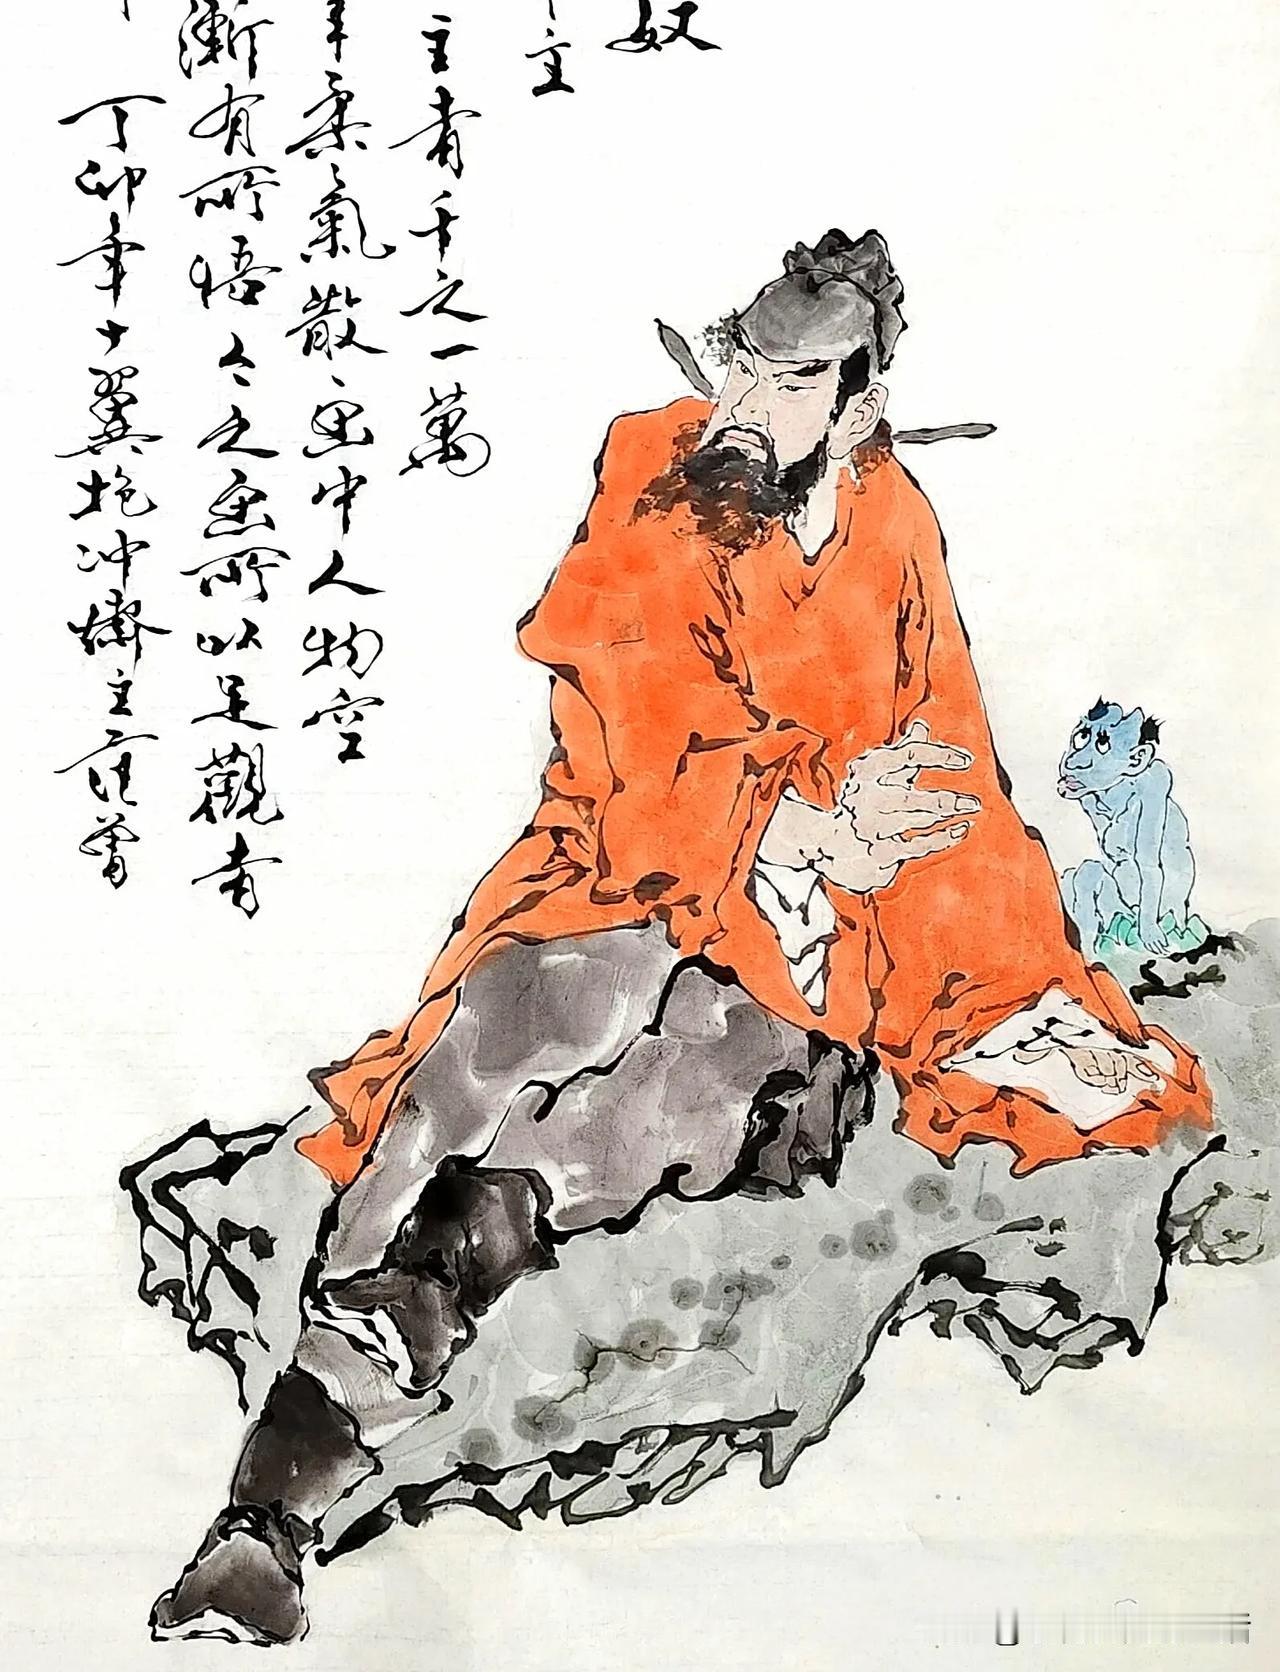 奴
主
主者千之一萬
年柔氣散画中人物空
漸有所悟今之画所以足觀者
丁卯年十翼抱冲齋主范曾